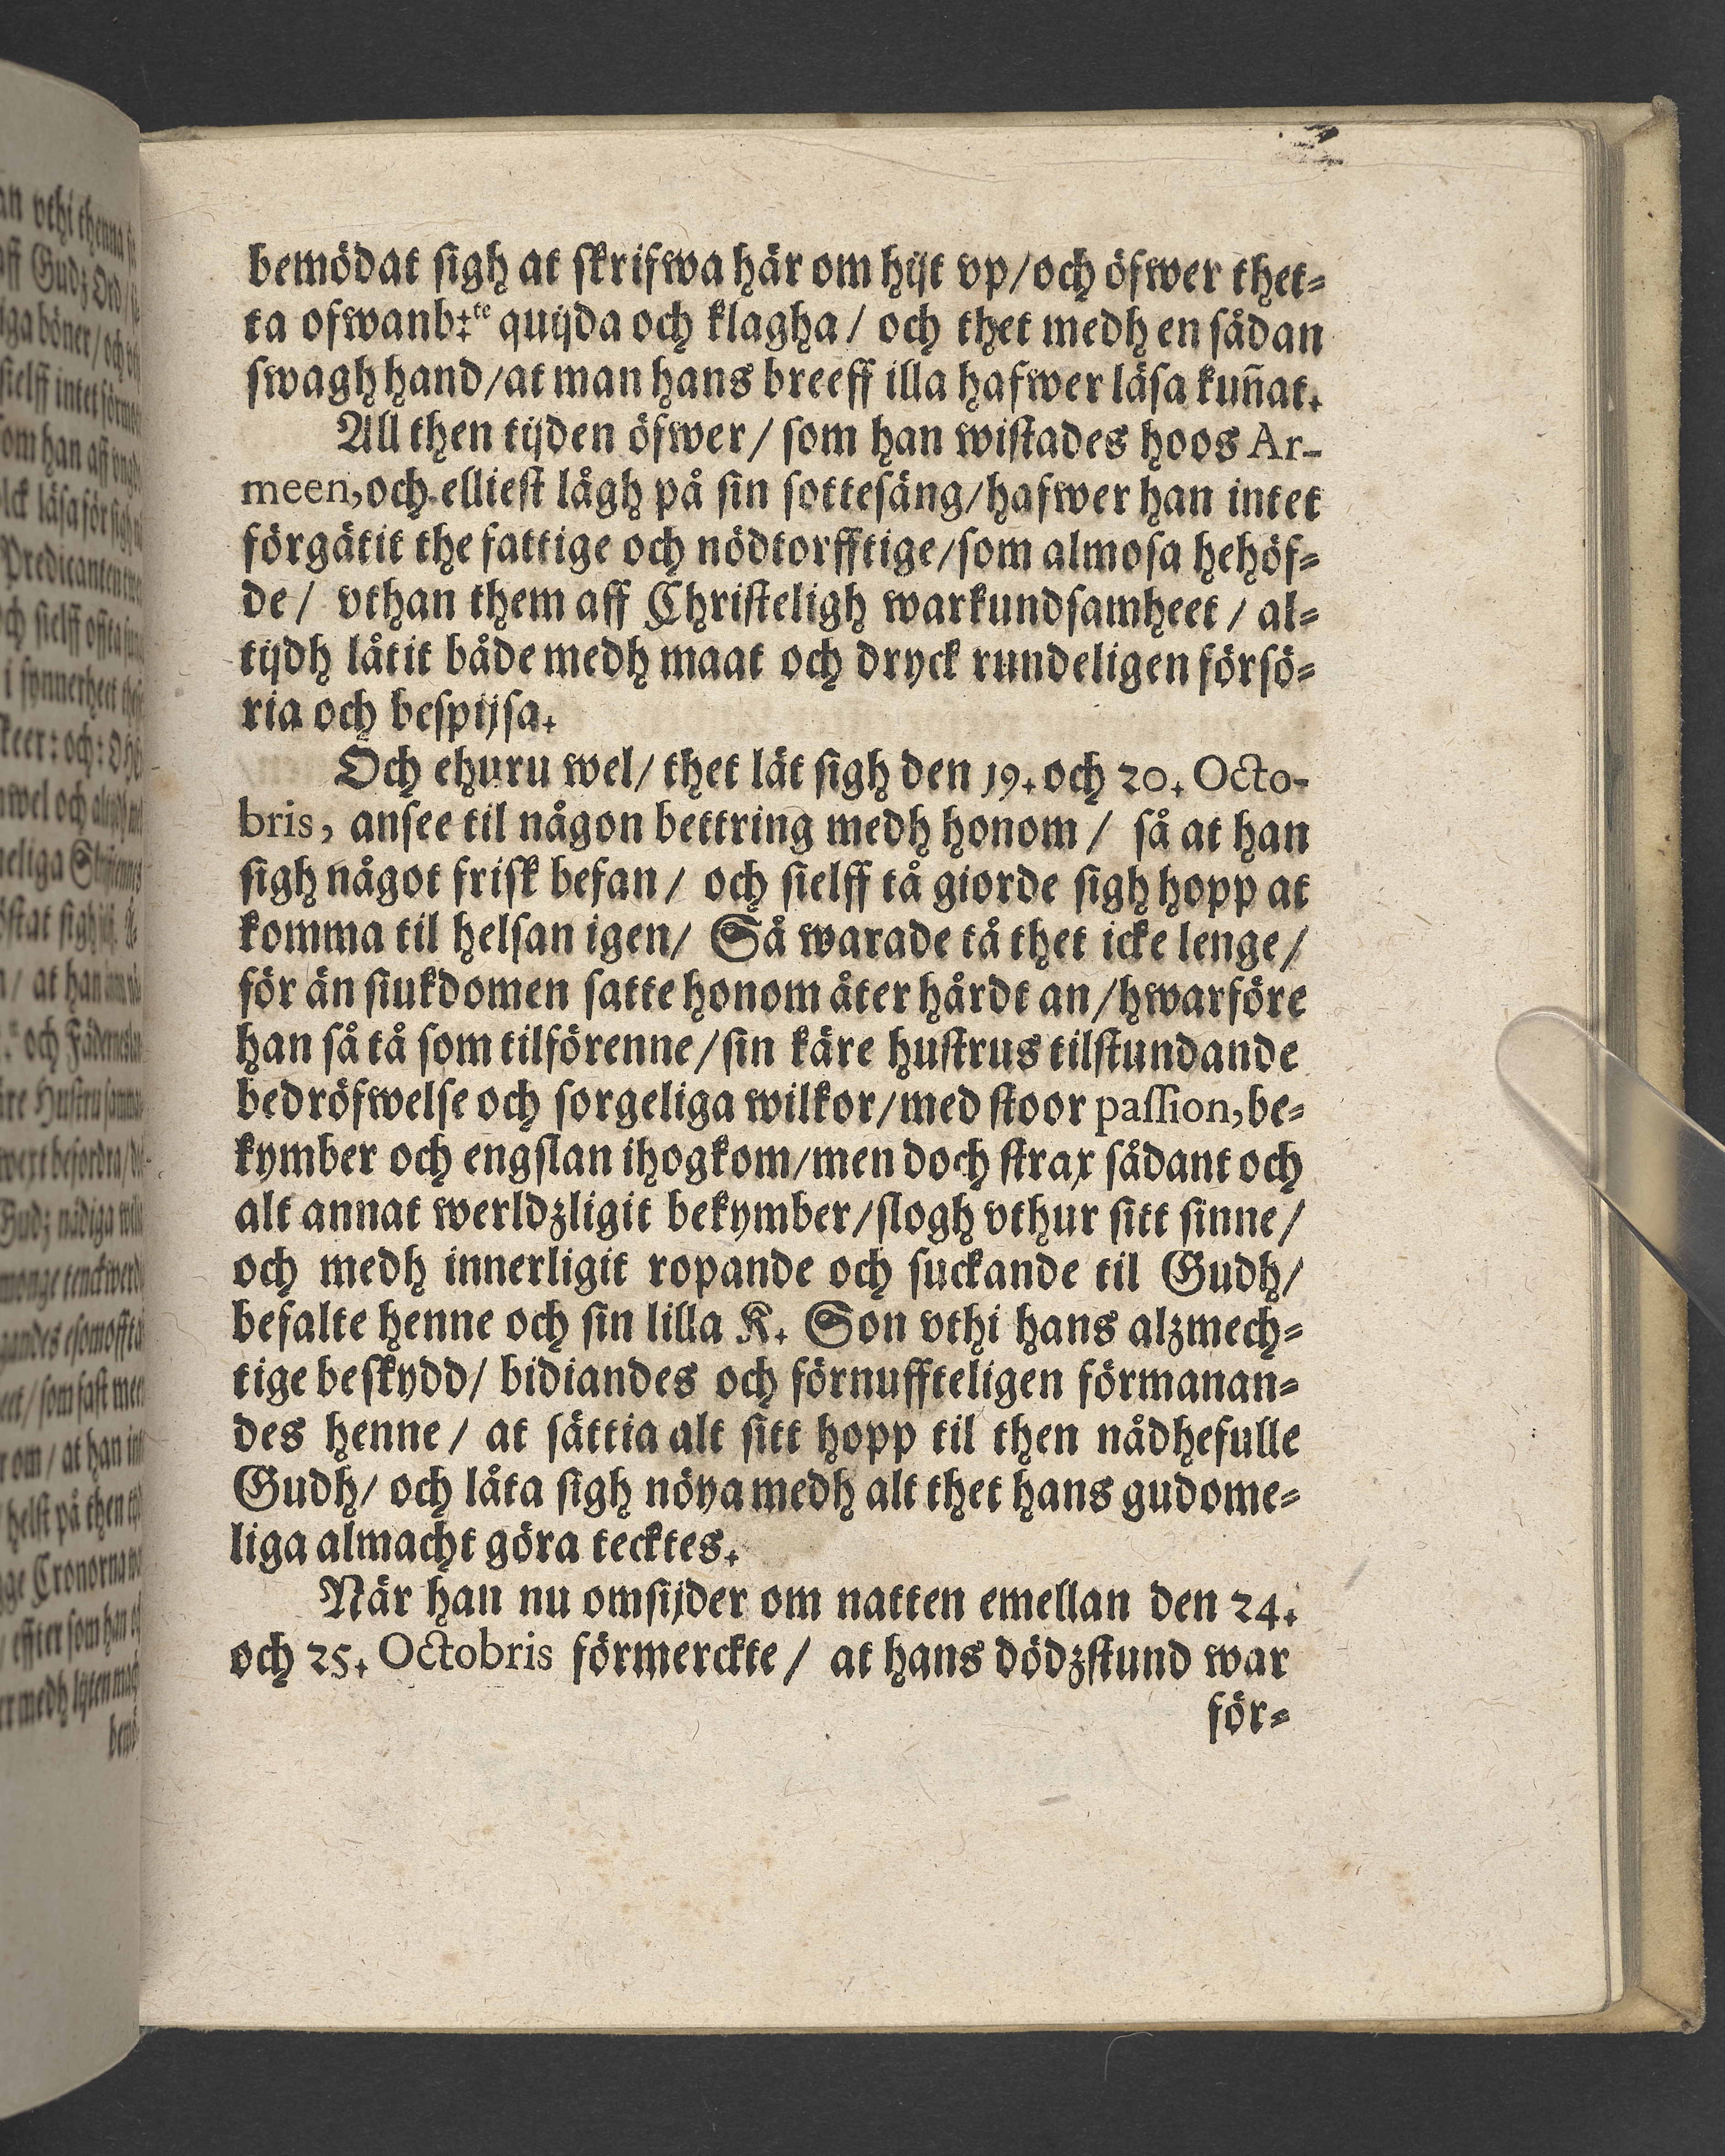 bemödat sigh at skrifwa här om hijt vp/och öfwer thet=
ta ofwanb:te quijda och klagha / och thet medh en sådan
swagh hand/at man hans breeff illa hafwer läsa kun̄at.
All then tijden öfwer / som han wistades hoos Ar-
meen, och elliest lågh på sin sottesäng/hafwer han intet
förgätit the fattige och nödtorfftige/som almosa hehöf=
de / vthan them aff Christeligh warkundsamheet / al=
tijdh låtit både medh maat och dryck rundeligen försö=
ria och bespijsa.
Och ehuru wel/ thet lät sigh den 19. och 20. Octo-
bris, ansee til någon bettring medh honom / så at han
sigh något frisk befan / och sielff tå giorde sigh hopp at
komma til helsan igen/ Så warade tå thet icke lenge /
för än siukdomen satte honom åter hårdt an /hwarföre
han så tå som tilförenne /sin käre hustrus tilstundande
bedröfwelse och sorgeliga wilkor/med stoor passion, be=
kymber och engslan ihogkom/men doch strax sådant och
alt annat werldzligit bekymber/slogh vthur sitt sinne /
och medh innerligit ropande och suckande til Gudh/
befalte henne och sin lilla K. Son vthi hans alzmech=
tige beskydd/ bidiandes och förnuffteligen förmanan=
des henne / at sättia alt sitt hopp til then nådhefulle
Gudh/ och låta sigh nöya medh alt thet hans gudome=
liga almacht göra tecktes.
När han nu omsijder om natten emellan den 24.
och 25. Octobris förmerckte / at hans dödzstund war
för=